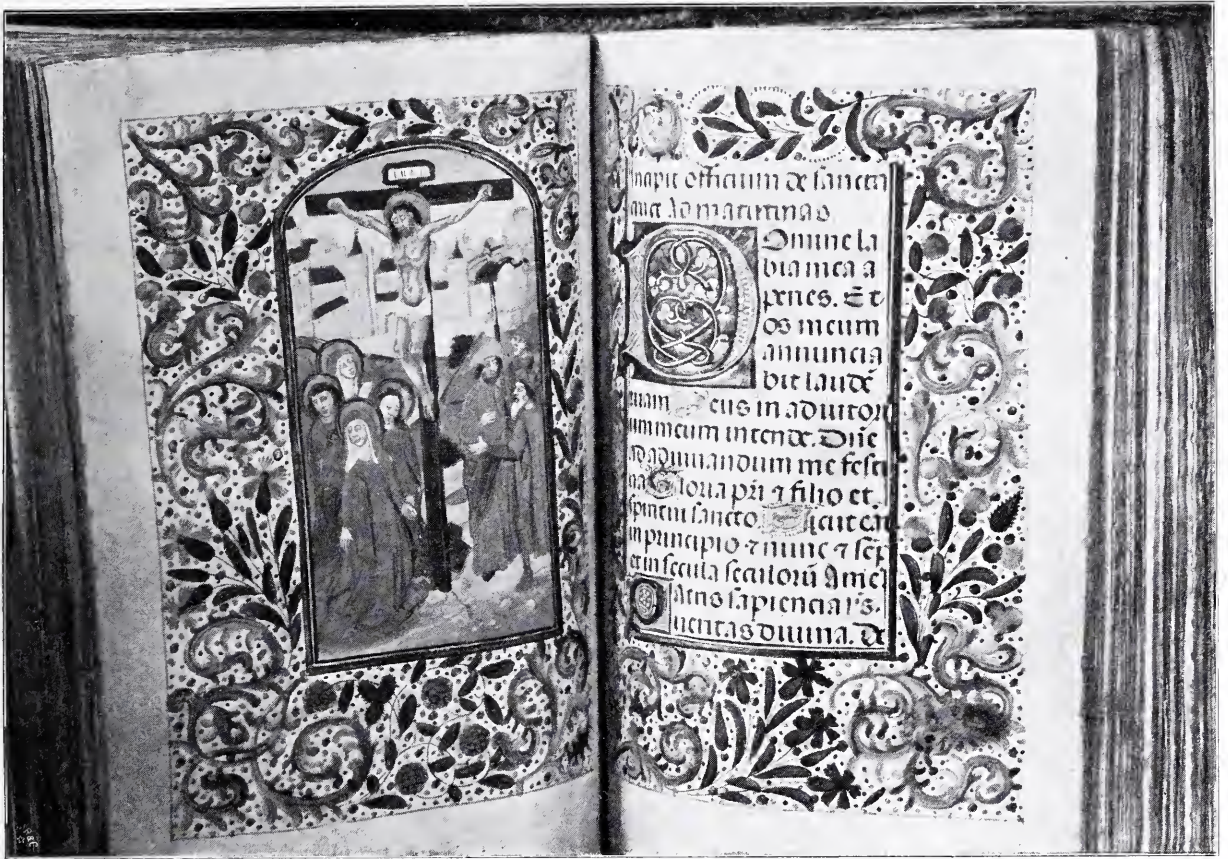 INRI
Incipit officium de sancta
cruce Ad matutinas
Domine la
bia mea a
peries. Et
os meum
annuncia
bit laudē
tuam Deus in adiutori
um meum intende. Dn̄e
ad adiuuandum me festi
na Gloria pr̄i ⁊ filio et
spiritui sancto Sicut erat
in principio ⁊ nunc ⁊ semp̄
et in secula seculorū Amen
Patris sapiencia
ueritas diuina. De